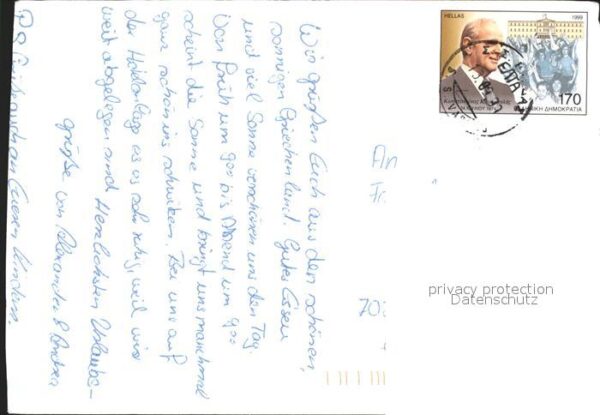 Wir grüßen Euch aus dem schönen,
sonnigen Griechenland. Gutes Essen
und viel Sonne verschönern uns den Tag.
Von früh um 9oo bis Abend um 9oo
scheint die Sonne und bringt uns manchmal
ganz schön ins schwitzen. Bei uns auf
der Hotelanlage ist es sehr ruhig, weil wir
weit abgelegen sind. Herzlichsten Urlaubs-
grüße von Alexander & Andrea
PS Grüß auch an Eueren Kindern.
HELLAS
1999
170
ΕΛΛΗΝΙΚΗ ΔΗΜΟΚΡΑΤΙΑ
An
Fr
70
privacy protection
Datenschutz